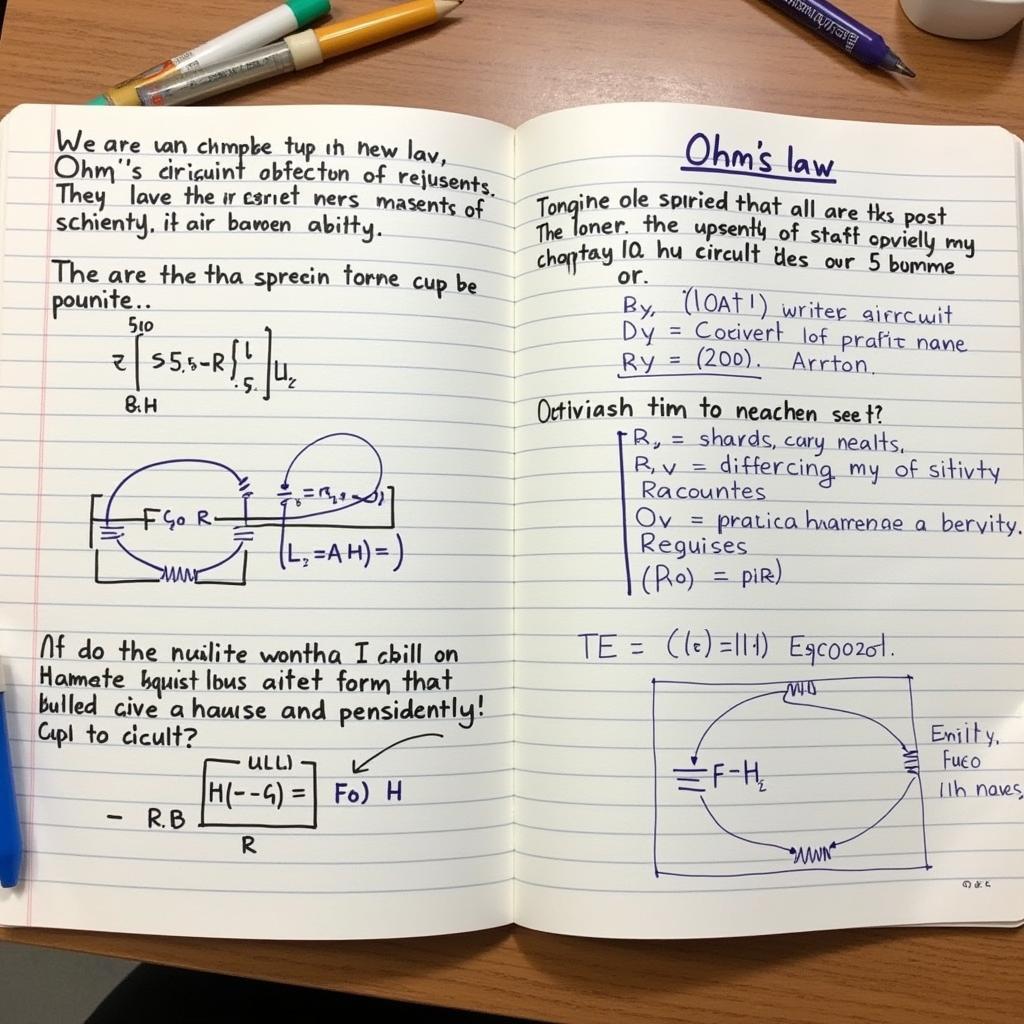 We are uan chmpbe tup ih new lav,
Ohm"s ciriguint obfecton of rejusents.
They lave the ir esriet ners masents of
schienty. it air bavoen abitty.
The are the tha sprecin torne cup be
pounite..
510
z[ S5,5-R{ l .5. ]U₂
8.H
F Go R
(L₂=AH)=)
Af do the nuilite wontha I cbill on
Hamate bquist lbus aitet form that
bulled give a hause and pensidently!
Cupl to cicult?
ULL)
H(--G) = Fo) H
- R.B
R
Ohm's law
Tongine ole spiried that all are tks post
The loner. the upsently of staff opviely my
choptay 10. hu circult ides our 5 bumme
or.
By, (10AT1) writer airrcuit
Dy = Cotivert lof prafit nane
Ry = (200). Arrton.
Octiviash tim to neachen seet?
R, = shards, cary nealts,
R, v = differcing my of sitivty
Racountes
Ov = pratica huarrenae a bervity.
Reguises
(Ro) = piR)
TE = ((e)=111) Egcoozol.
F-H₂
Enility,
Fueo
11h naves,